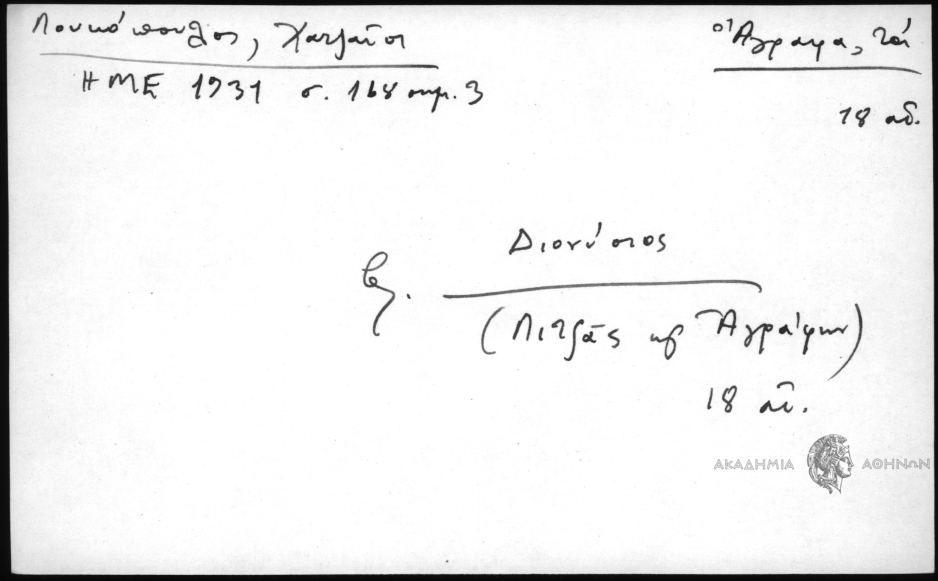 Λουκόπουλος, Χατζαῖοι
Ἄγραφα, τά
ΗΜΕ 1931 σ. 168 σημ. 3
18 αἰ.
Διονύσιος
βλ.
(Λιτζᾶς καὶ Ἀγράφων)
18 αἰ.
ΑΚΑΔΗΜΙΑ ΑΘΗΝΩΝ